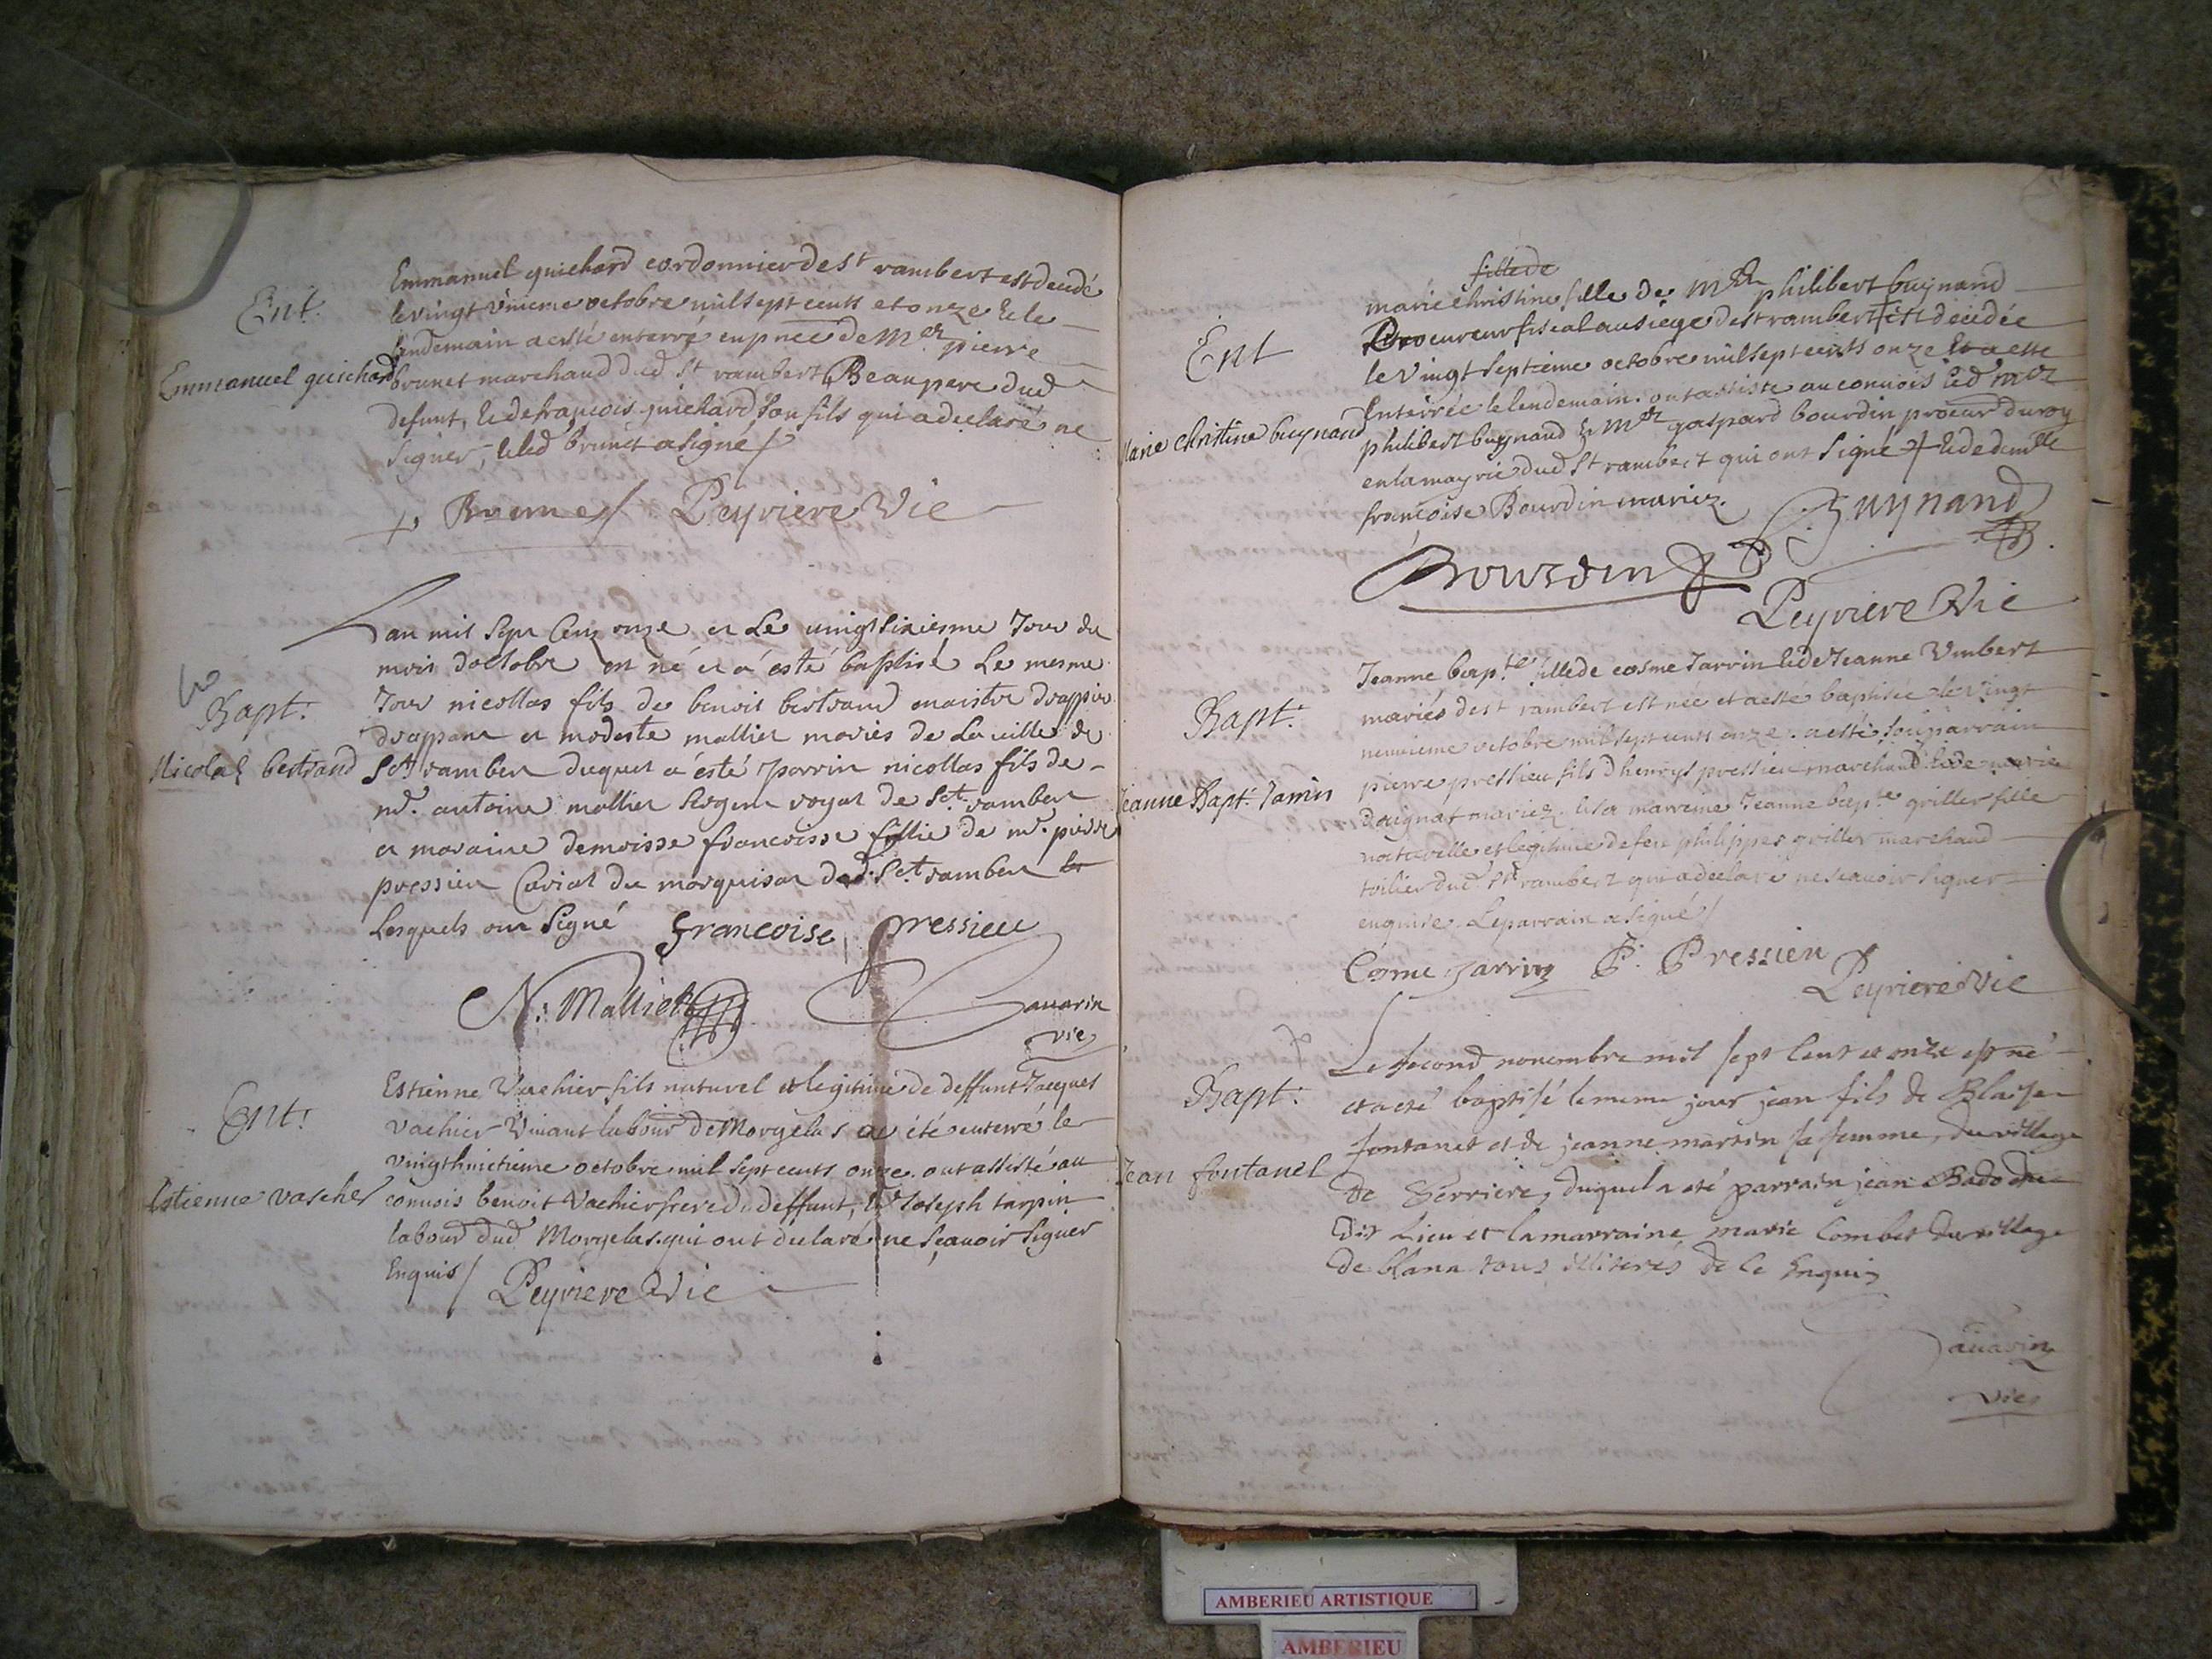 Ent.
Emmanuel guichard
Emmanuel guichard cordonnier de st rambert est decedé
le vingt unieme octobre mil sept cents et onze & le
lendemain a esté enterré en pnce de Mer pierre
brunet marchand dud st rambert Beaupere dud
defunt, & de francois guichard son fils qui a declaré ne
signer, & led brunet a signé /
Brunet / Peyriere Vic
Bapt.
Nicolas bertrand
Lan mil sept cens onze et Le vingt sixiesme Jour du
mois doctobre est né et a esté baptisé Le mesme
Jour nicollas fils de benoit bertrand maistre drappier
drappant et modeste malliet mariés de La ville de
Sct rambert duquel a esté parrin nicollas fils de
mr. antoine malliet sergent royal de Sct rambert
et maraine demoisse francoisse fillie de mr. pierre
pressieu du marquisat dud. Sct rambert
Lesquels ont Signé francoise pressieu
N: Malliet
Savarin
vic
Ent.
Estienne vascher
Estienne Vachier fils naturel et legitime de deffunt Jacques
vachier vivant labour de Morgelas a été enterré le
vingthuictieme octobre mil sept cents onze. ont assisté au
convois benoit Vachier frere du deffunt, & Joseph tarpin
labour dud Morgelas qui ont declaré ne scavoir signer
Enquis / Peyriere Vic
Ent
Marie christine buynand
fille de
marie christine fille de Mer philibert buynand
procureur fiscal au siege de st rambert est décédée
le vingt septieme octobre mil sept cents onze Et a esté
Enterrée le lendemain. ont assisté au convois led mer
philibert buynand & Mer gaspard bourdin procur du roy
en la mayrie dud st rambert qui ont signé + & de demlle
francoise Bourdin mariez.
Buynand
Bourdin
Peyriere Vic
Bapt.
Jeanne Bapt. Jarrin
Jeanne bapte fille de cosme Jarrin & de Jeanne Umbert
mariés de st rambert est née et a esté baptisée le vingt
neuvieme octobre mil sept cents onze. a esté son parrain
pierre pressieu fils d henrys pressieu marchand & de marie
mariez. & la marreine Jeanne bapte griller fille
naturelle et legitime de feu philippes griller marchand
toilier dud st rambert qui a declaré ne scavoir signer
enquise. Le parrain a signé /
Cosme Jarrin P. Pressieu
Peyriere Vic
Bapt.
Jean fontanel
Le second novembre mil sept cent et onze est né
et a eté baptisé le meme jour jean fils de Blaise
fontanet et de jeanne martin sa femme, du village
de Serriere, duquel a eté parrain jean Bado du
dit Lieu et la marraine marie Combet du village
de blana tous illiterés de ce Enquis
Savarin
vic
AMBERIEU ARTISTIQUE
AMBERIEU